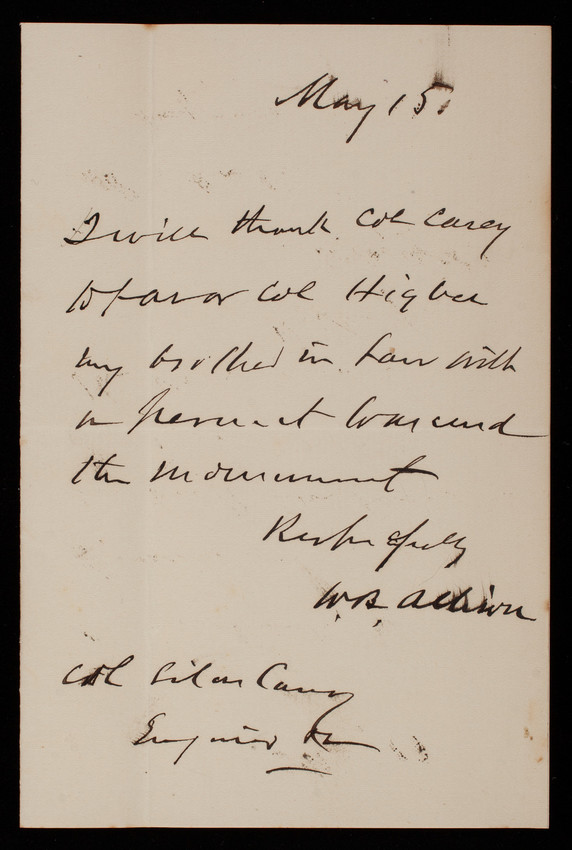 May 15
I will thank Col Casey
to favor Col Higbee
my brother in law with
a permit to ascend
the monument
Respectfully
W.B. Allison
Col Silas Casey
Engineer